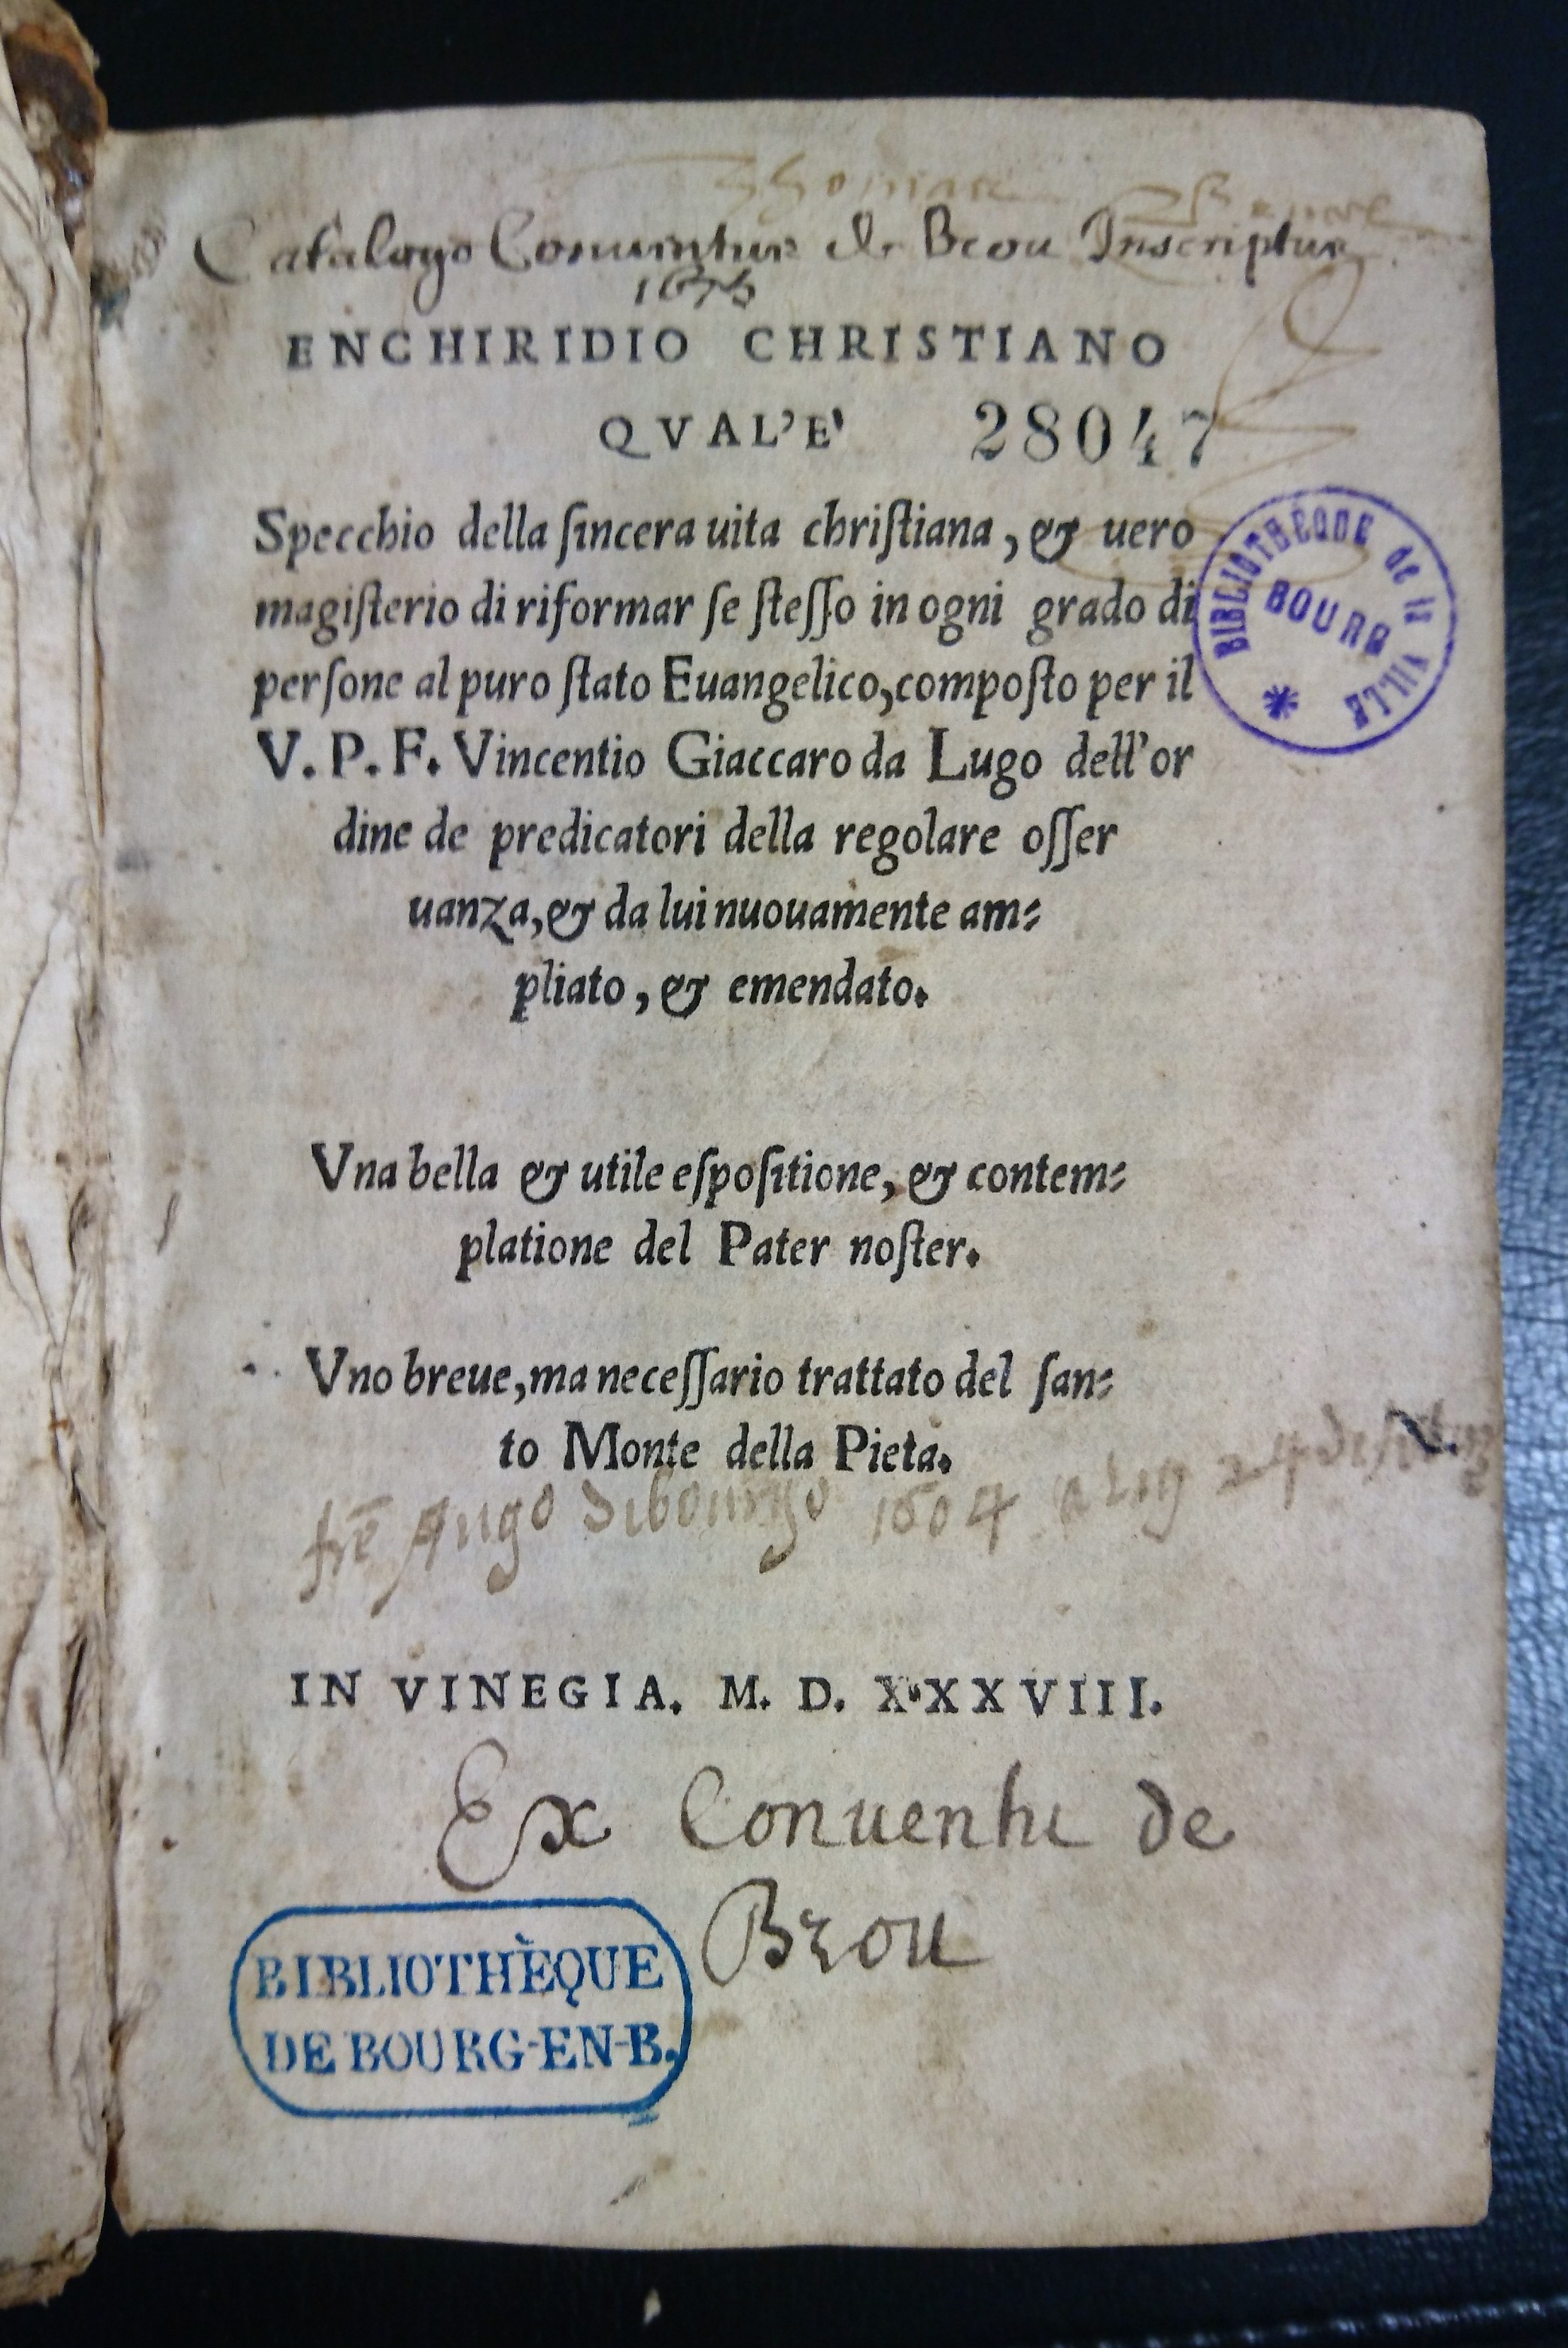 Catalogo Conuentus de Brou Inscriptus
1675
ENCHIRIDIO CHRISTIANO
QVAL'E'
28047
Specchio della ſincera uita chriſtiana, & uero
magiſterio di riformar ſe ſteſſo in ogni grado di
perſone al puro ſtato Euangelico, compoſto per il
V. P. F. Vincentio Giaccaro da Lugo dell'or
dine de predicatori della regolare oſſer
uanza, & da lui nuouamente am⸗
pliato, & emendato.
BIBLIOTHEQUE de la VILLE
BOURG
Vna bella & utile eſpoſitione, & contem⸗
platione del Pater noſter.
Vno breue, ma neceſſario trattato del ſan⸗
to Monte della Pieta.
1604
IN VINEGIA. M. D. XXXVIII.
Ex Conuentu de
Brou
BIBLIOTHÈQUE
DE BOURG-EN-B.